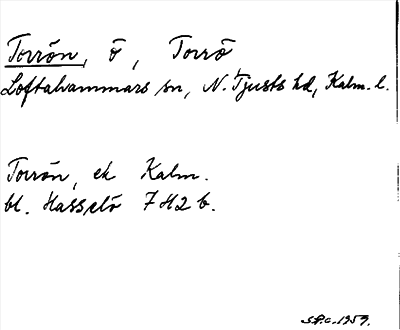 Torrön, ö, Torrö
Loftahammars sn, N. Tjusts hd, Kalm. l.
Torrön, ek Kalm.
bl. Hasselö 7 H2 b.
S.P.C. 1959.